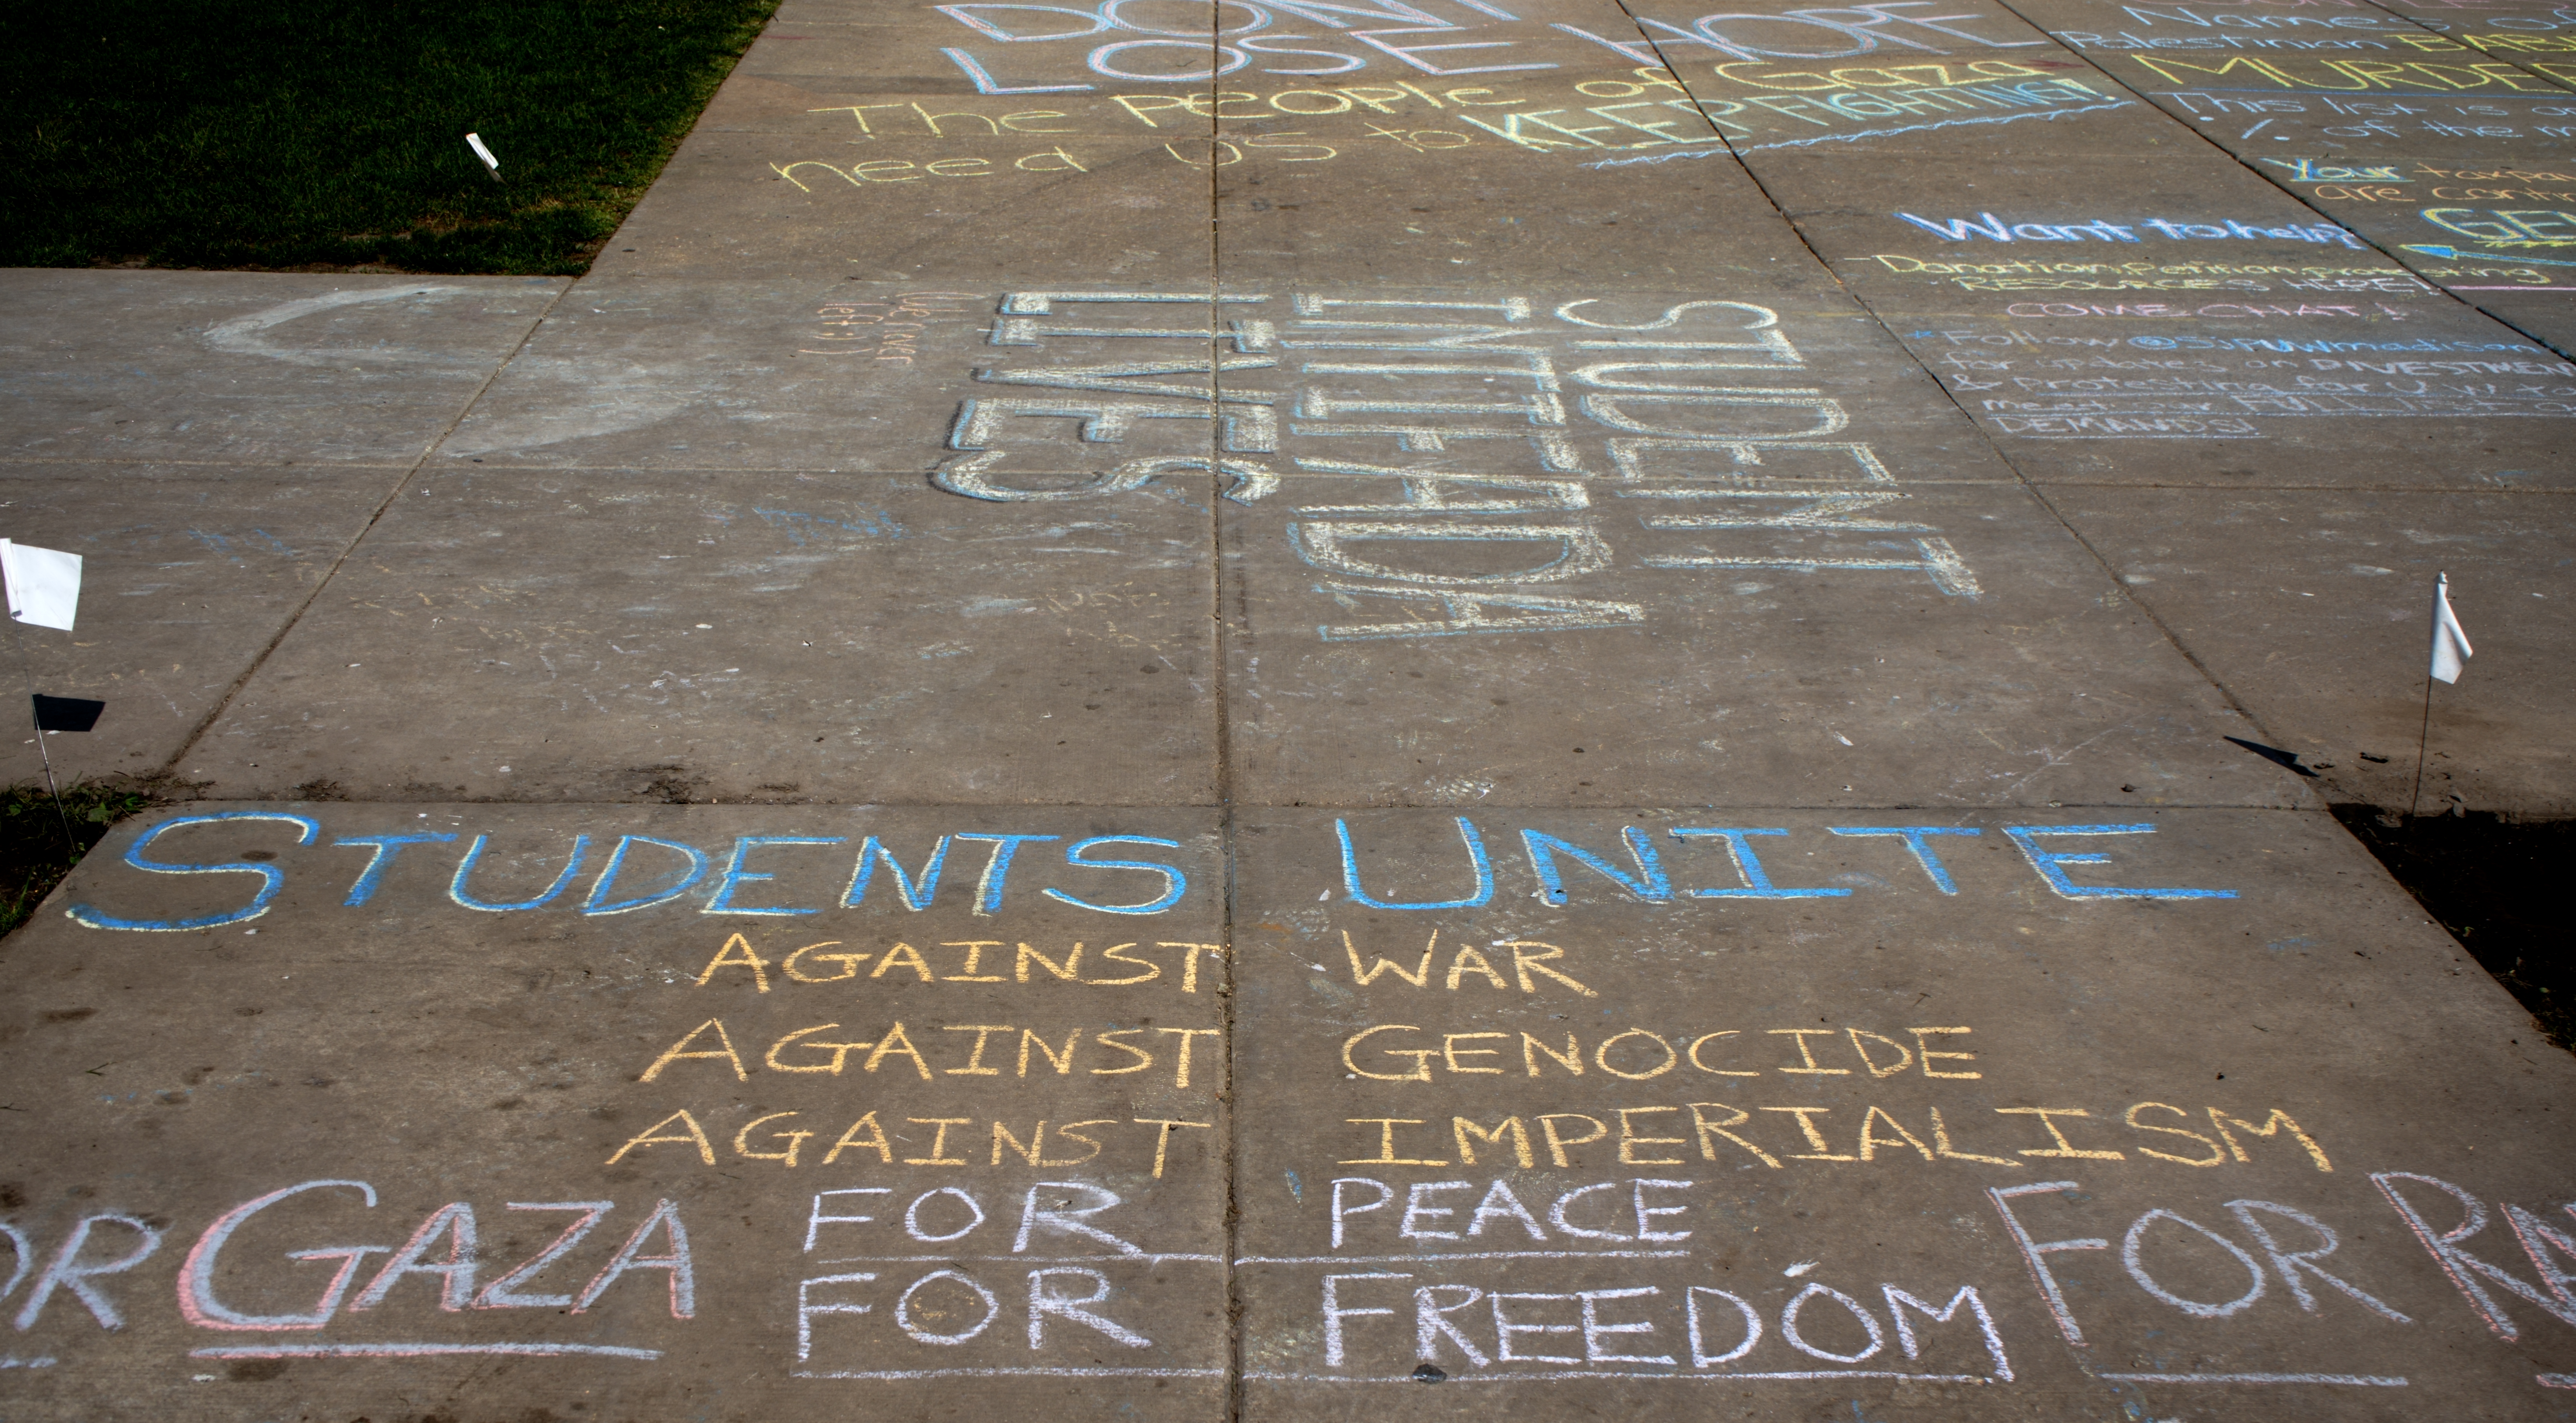 DON'T
LOSE HOPE
The PEOPLE of Gaza
need US to KEEP FIGHTING!
Names of
Palestinian
MURDE
This list is
% of the m
Your taxpa
are
GE
Want to help?
Donation, Petition, protesting
RESOURCES HERE!
COME CHAT!
* Follow @SJPUWmadison
for updates on DIVESTMEN
& Protesting for UW to
meet our FULL
DEMANDS!
STUDENT
INTIFADA
LIVES
STUDENTS UNITE
AGAINST WAR
AGAINST GENOCIDE
AGAINST IMPERIALISM
FOR PEACE
OR GAZA
FOR FREEDOM
FOR RA